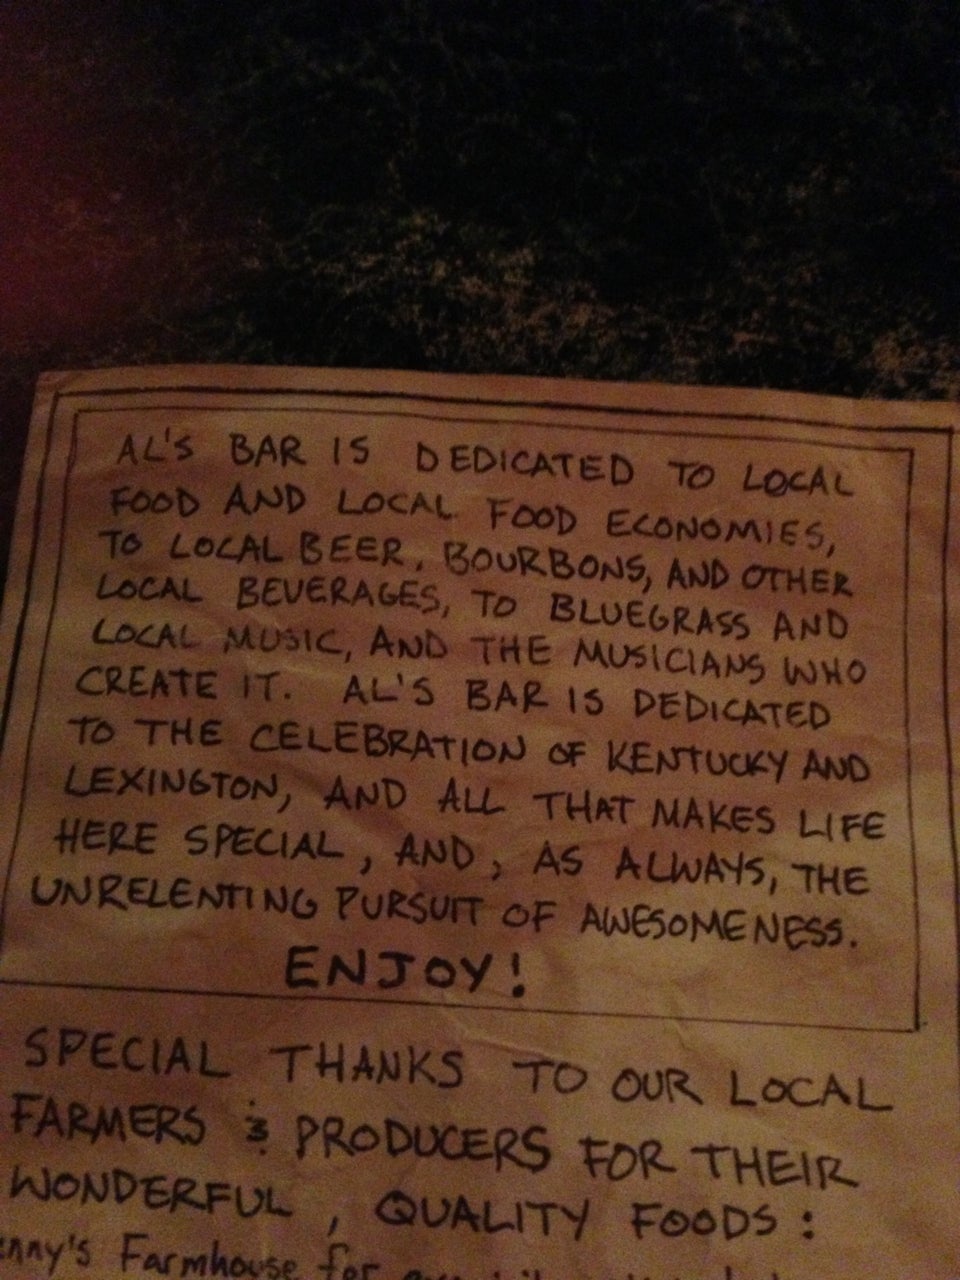 AL'S BAR IS DEDICATED TO LOCAL
FOOD AND LOCAL FOOD ECONOMIES,
TO LOCAL BEER, BOURBONS, AND OTHER
LOCAL BEVERAGES, TO BLUEGRASS AND
LOCAL MUSIC, AND THE MUSICIANS WHO
CREATE IT. AL'S BAR IS DEDICATED
TO THE CELEBRATION OF KENTUCKY AND
LEXINGTON, AND ALL THAT MAKES LIFE
HERE SPECIAL, AND, AS ALWAYS, THE
UNRELENTING PURSUIT OF AWESOMENESS.
ENJOY!
SPECIAL THANKS TO OUR LOCAL
FARMERS & PRODUCERS FOR THEIR
WONDERFUL, QUALITY FOODS:
Farmhouse for